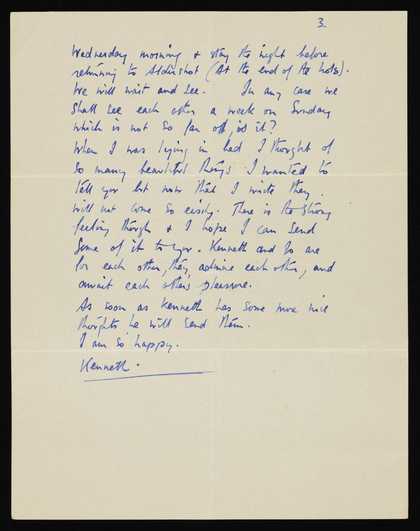 3.
Wednesday morning & stay the night before
returning to Aldershot (At the end of the hols).
We will wait and see. In any case we
shall see each other a week on Sunday
which is not so far off, is it?
When I was lying in bed I thought of
so many beautiful things I wanted to
tell you but now that I write they
will not come so easily. There is the strong
feeling though & I hope I can send
some of it to you. Kenneth and Jo are
for each other, they admire each other, and
await each others pleasure.
As soon as Kenneth has some more nice
thoughts he will send them.
I am so happy.
Kenneth.